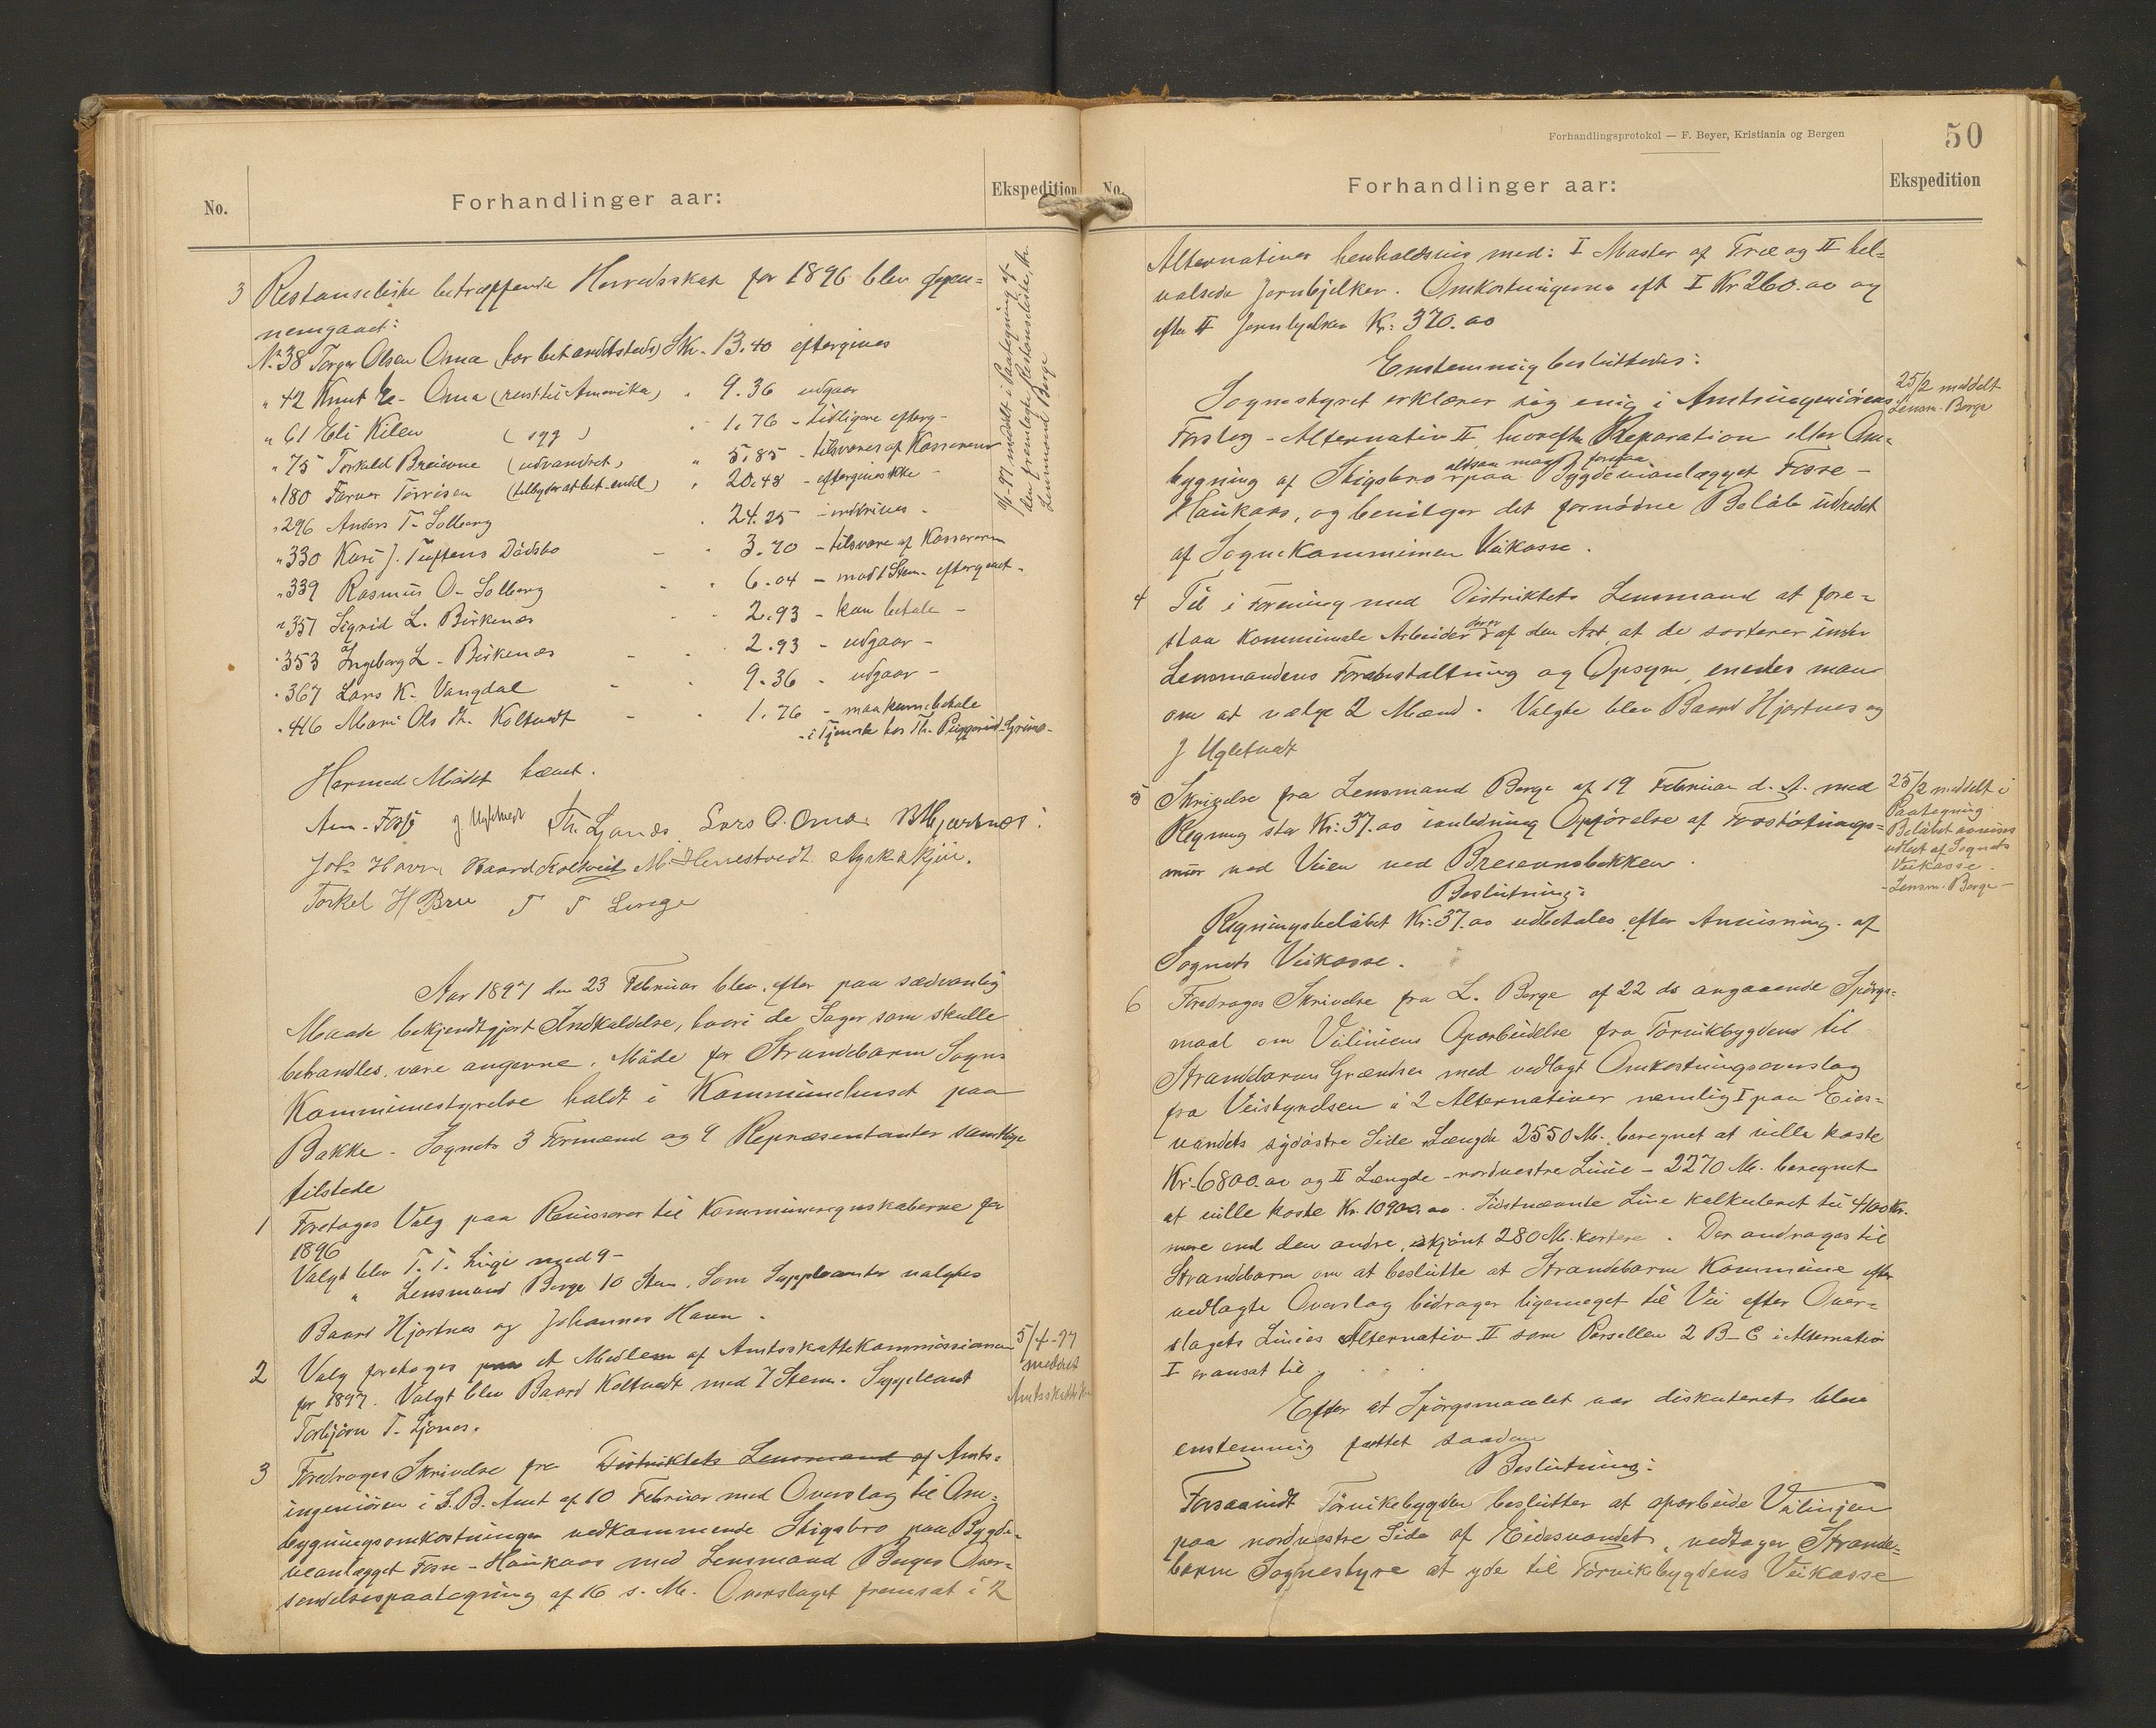 No.
Forhandlinger aar:
Ekspedition
3 Restanseliste betræffende Herredsskat for 1896 blev gjen-
nemgaaet:
No. 38 Torger Olsen Oma (har bet andetsteds) Sk. 13.40 eftergives
" 42 Knut E. Oma (reist til Amerika) " 9.36 udgaar
" 61 Eli Kilen (syg) " 1.76 - tidligere efterg-
" 75 Torkild Breievne (udvandret) " 5.85 - tilsvares af Kassereren
" 180 Farver Tørrisen (tilbyder at bet. endel) " 20.48 - eftergives ikke -
" 296 Anders T. Solberg " 24.25 - inddrives -
" 330 Kari J. Tuftens Dødsbo - " 3.70 - tilsvare af Kassereren
" 339 Rasmus O. Solberg - " 6.04 - mod 1 Stem. eftergivet -
" 351 Sigrid L. Birkenes - " 2.93 - kan betale -
" 353 Ingeborg L. Birkenes - " 2.93 - udgaar -
" 367 Lars K. Vangdal - " 9.36 - udgaar -
" 446 Mari Ols dt. Koltvedt - " 1.76 - maa kunne betale
- i Tjeneste hos Th.
meddelt i Paategning af
den fremlagte Restanseliste, th.
Lensmand Berge
Hermed Mødet hævet.
Am. Foss J Ugletvedt Th. Ljones Lars O. Oma B Hjartnes
Johs Havn Baard Koltveit M Herrestvedt
Torkel H Bru T T Linge
Aar 1897 den 23 Februar blev, efter paa sædvanlig
Maade bekjendtgjort Indkaldelse, hvori de Sager som skulle
behandles, vare angivne, Møde for Strandebarm Sogns
Kommunestyrelse holdt i Kommunehuset paa
Bakke. Sognets 3 Formænd og 9 Repræsentanter samtlige
tilstede
1 Foretages Valg paa Revisorer til Kommuneregnskaberne for
1896
Valgt blev T. T. Linge med 9 -
" Lensmand Berge 10 Stem. Som Suppleanter valgtes
Baard Hjartnes og Johannes Havn.
2 Valg foretages paa et Medlem af Amtsskattekommissionen
for 1897. Valgt blev Baard Koltvedt med 7 Stem. Suppleant
Torbjørn T. Ljones.
5/4-97
meddelt
3 Foredrages Skrivelse fra Distriktets Lensmand af Amts-
ingeniøren i S. B. Amt af 10 Februar med Overslag til Om-
bygningsomkostninger vedkommende Stigsbro paa Bygde-
veanlægget Fosse-Haukaas med Lensmand Berges Over-
sendelsespaategning af 16 s. M. Overslaget fremsat i 2
Forhandlingsprotokol — F. Beyer, Kristiania og Bergen
50
No.
Forhandlinger aar:
Ekspedition
Alternativer henholdsvis med: I Master af Træ og II hel-
valsede Jernbjelker. Omkostningerne eft I Kr 260.00 og
efter II Jernbjelker Kr: 370.00
Enstemmig besluttedes:
Sognestyret erklærer sig enig i Amtsingeniørens
Forslag - Alternativ II, hvorefter Reparation eller Om-
bygning af Stigsbro altsaa maa foregaa paa Bygdeveianlægget Fosse-
Haukaas, og bevilger det fornødne Beløb udredet
af Sognekommunen Veikasse.
25/2 meddelt
Lensm. Berge
4 Til i Forening med Distriktets Lensmand at fore-
staa Kommunale Arbeider der er af den Art, at de sorterer under
Lensmandens Foranstaltning og Opsyn, enedes man
om at vælge 2 Mænd. Valgte blev Baard Hjartnes og
J Ugletvedt
5 Skrivelse fra Lensmand Berge af 19 Februar d. A. med
Regning stor Kr: 37.00 i anledning Opførelse af Forstøtnings-
mur ved Veien ved Breievnsbakken.
Beslutning:
Regningsbeløbet Kr: 37.00 udbetales efter Anvisning af
Sognets Veikasse.
25/2 meddelt i
Paategning
Beløbet anvises
udbet af Sognets
Veikasse.
- Lensm. Berge -
6 Foredrages Skrivelse fra L. Berge af 22 ds angaaende Spørgs-
maal om Veiliniens Oparbeidelse fra Tørvikbygdens til
Strandebarms Grændser med vedlagt Omkostningsoverslag
fra Veistyrelsen i 2 Alternativer nemlig I paa Eides-
vandets sydøstre Side Længde 2550 M. beregnet at ville koste
Kr. 6800.00 og II Længde - nordvestre Linie - 2270 M. beregnet
at ville koste Kr. 10900.00. Sidstnævnte Linie kalkuleret til 4100 Kr.
mere end den andre, skjønt 280 M. kortere. Der andrages til
Strandebarm om at beslutte at Strandebarm Kommune efter
vedlagte Overslag bidrager ligemeget til Vei efter Over-
slagets Linies Alternativ II som Parsellen 2 B-C i Alternativ
I er ansat til.
Efter at Spørgsmaalet var diskuteret, blev
enstemmig fattet saadan
Beslutning:
Forsaavidt Tørvikebygden beslutter at oparbeide Veilinjen
paa nordvestre Side af Eidesvandet, vedtager Strande-
barm Sognestyre at yde til Tørvikbygdens Veikasse